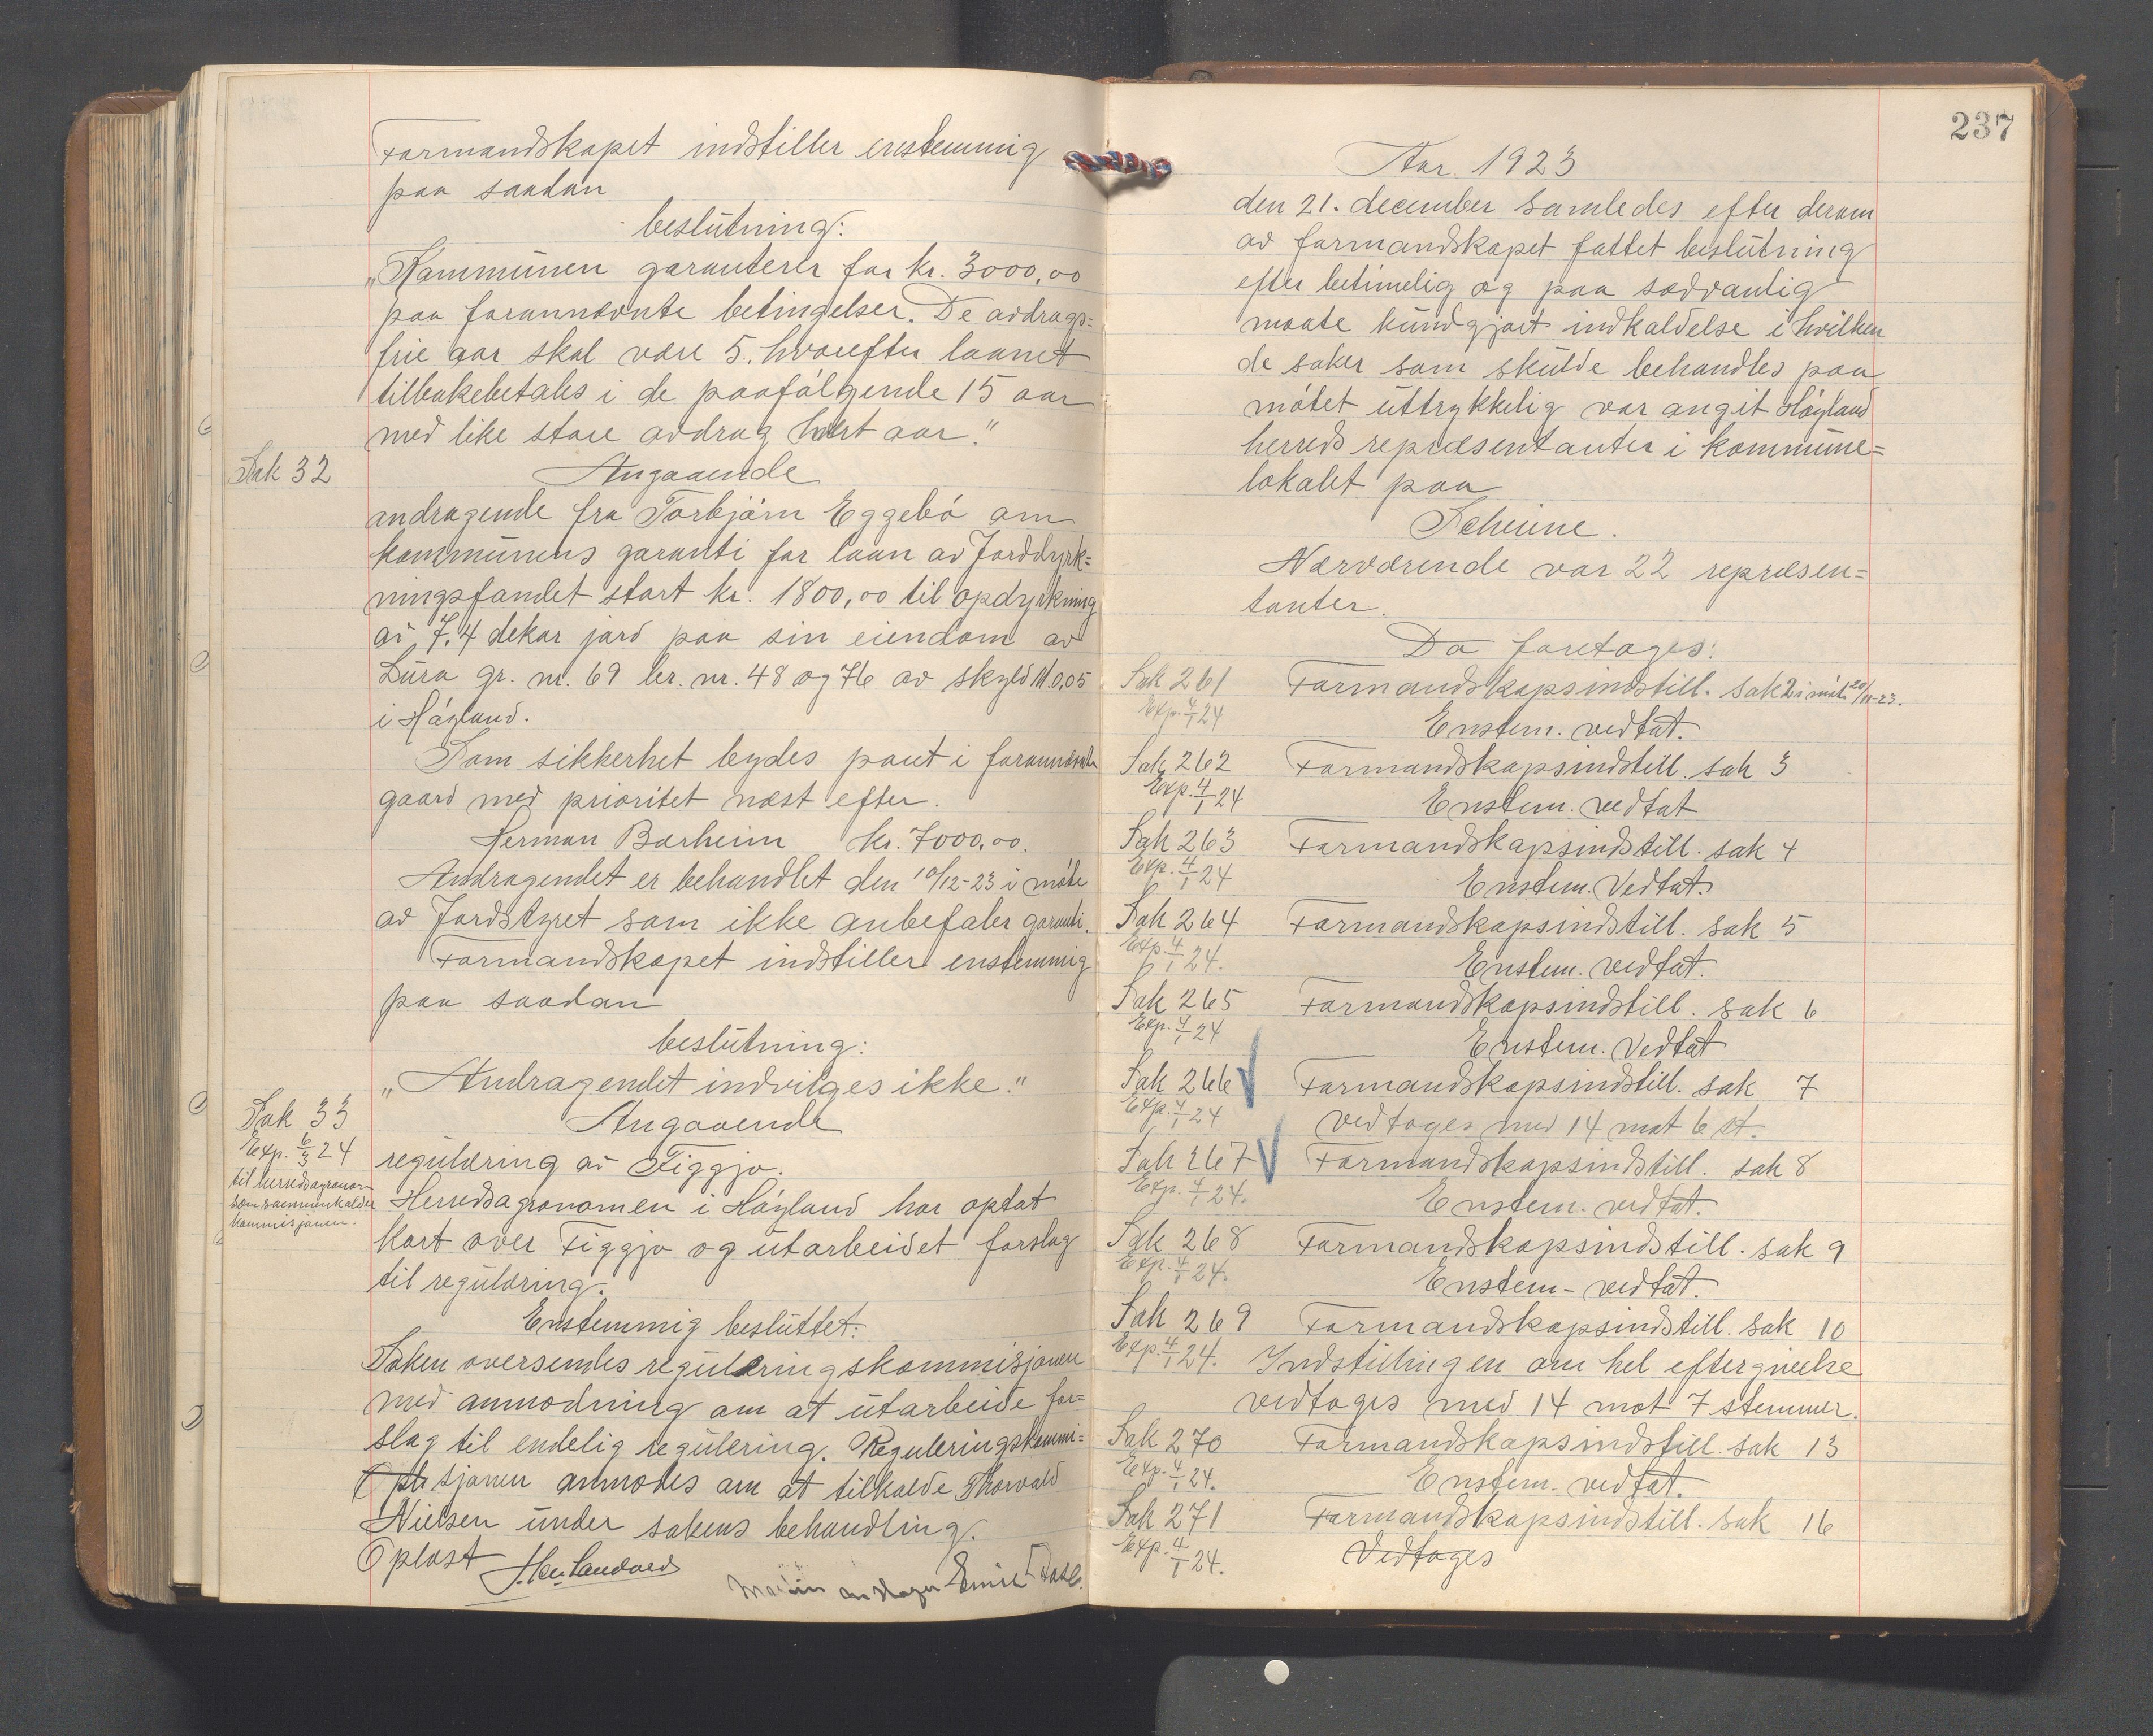 Formandskapet indstiller enstemmig
paa saadan
beslutning:
"Kommunen garanterer for kr. 3000,00
paa forannævnte betingelser. De avdrags=
frie aar skal være 5, hvorefter laanet
tilbakebetales i de paafølgende 15 aar
med like store avdrag hvert aar."
Sak 32
Angaaende
andragende fra Torbjørn Eggebø om
kommunens garanti for laan av Jorddyrk=
ningsfondet stort kr. 1800,00 til opdyrkning
av 7,4 dekar jord paa sin eiendom av
Lura gr. nr. 69 br. nr. 48 og 76 av skyld M. 0,05
i Høyland.
Som sikkerhet bydes pant i forannævnte
gaard med prioritet næst efter.
Herman Bærheim kr. 7000,00.
Andragendet er behandlet den 10/12-23 i møte
av Jordstyret som ikke anbefaler garanti.
Formandskapet indstiller enstemmig
paa saadan
beslutning:
"Andragendet indvilges ikke."
Sak 33
Exp. 6/3 24
til herredsagronom
som sammenkalder
kommisjonen.
Angaaende
regulering av Figgjo.
Herredsagronomen i Høyland har optat
kart over Figgjo og utarbeidet forslag
til regulering.
Enstemmig besluttet:
Saken oversendes reguleringskommisjonen
med anmodning om at utarbeide for=
slag til endelig regulering. Reguleringskommi=
sjonen anmodes om at tilkalde Thorvald
Nielsen under sakens behandling.
Oplæst
237
Aar. 1923
den 21. december samledes efter derom
av formandskapet fattet beslutning
efter betimelig og paa sedvanlig
maate kundgjort indkaldelse i hvilken
de saker som skulde behandles paa
møtet uttrykkelig var angit Høyland
herreds repræsentanter i kommune=
lokalet paa
Scheine.
Nærværende var 22 repræsen=
tanter.
Da foretages:
Sak 261 Formandskapsindstill. sak 2 i møte 20/11-23.
Exp. 4/1 24
Enstem. vedtat.
Sak 262 Formandskapsindstill. sak 3
Exp. 4/1 24
Enstem. vedtat
Sak 263 Formandskapsindstill. sak 4
Exp. 4/1 24
Enstem. Vedtat.
Sak 264 Formandskapsindstill. sak 5
Exp. 4/1 24.
Enstem. vedtat.
Sak 265 Formandskapsindstill. sak 6
Exp. 4/1 24
Enstem. Vedtat
Sak 266 Formandskapsindstill. sak 7
Exp. 4/1 24
vedtages med 14 mot 6 st.
Sak 267 Formandskapsindstill. sak 8
Exp. 4/1 24.
Enstem. vedtat.
Sak 268 Formandskapsindstill. sak 9
Exp. 4/1 24.
Enstem- vedtat.
Sak 269 Formandskapsindstill. sak 10
Exp. 4/1 24. Indstillingen om hel eftergivelse
vedtages med 14 mot 7 stemmer.
Sak 270 Formandskapsindstill. sak 13
Exp. 4/1 24.
Enstem. vedtat.
Sak 271 Formandskapsindstill. sak 16
Exp. 4/1 24.
Vedtages